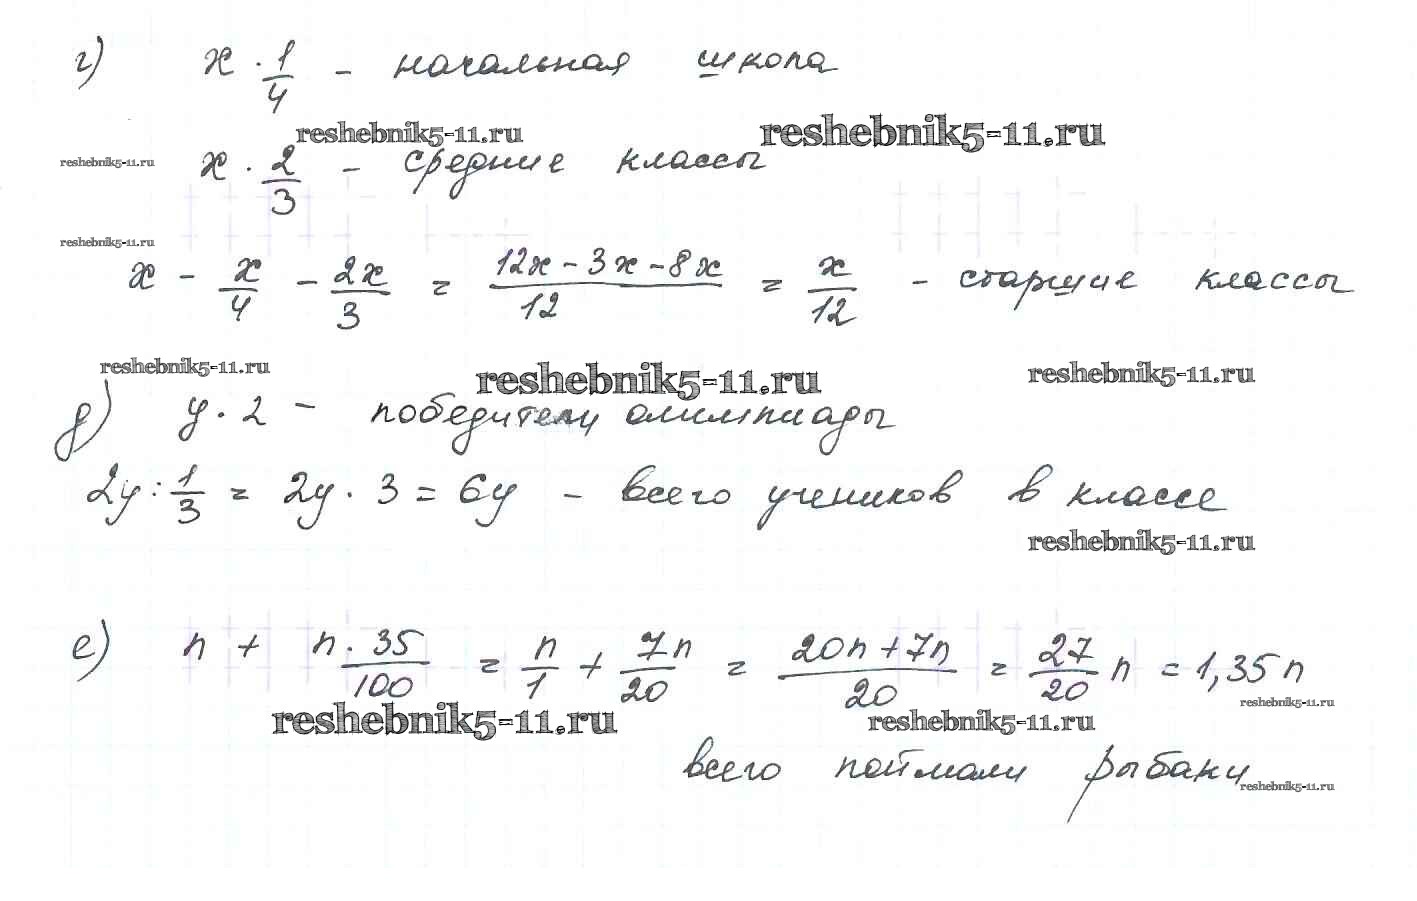 г) x · 1/4 - начальная школа
reshebnik5-11.ru reshebnik5-11.ru
reshebnik5-11.ru
x · 2/3 - средние классы
reshebnik5-11.ru
x - x/4 - 2x/3 = (12x - 3x - 8x)/12 = x/12 - старшие классы
reshebnik5-11.ru reshebnik5-11.ru reshebnik5-11.ru
д) y · 2 - победители олимпиады
2y : 1/3 = 2y · 3 = 6y - всего учеников в классе
reshebnik5-11.ru
е) n + n · 35/100 = n/1 + 7n/20 = (20n + 7n)/20 = 27/20 n = 1,35 n
reshebnik5-11.ru
reshebnik5-11.ru reshebnik5-11.ru
всего поймали рыбаки
reshebnik5-11.ru